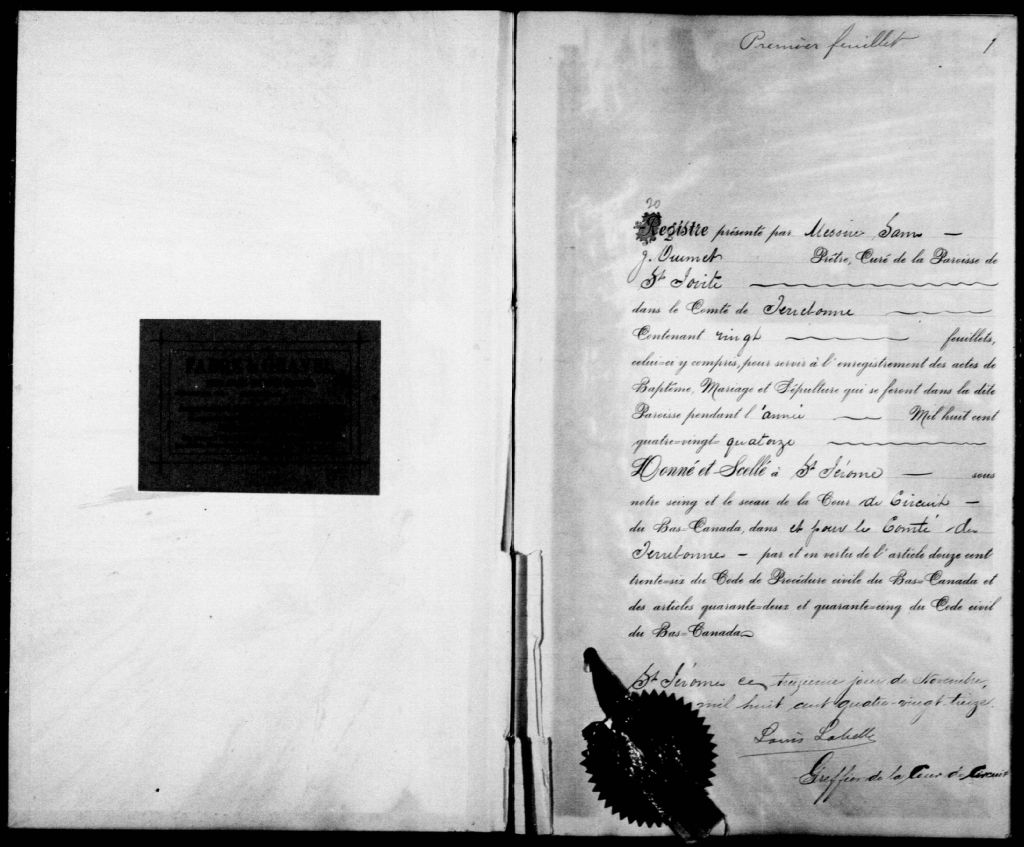 Premier feuillet 1
20
Registre présenté par Messire Sam —
J. Ouimet Prêtre, Curé de la Paroisse de
St Jovite
dans le Comté de Terrebonne
Contenant vingt feuillets,
celui=ci y compris, pour servir à l'enregistrement des actes de
Baptême, Mariage et Sépulture qui se feront dans la dite
Paroisse pendant l'année Mil huit cent
quatre=vingt= quatorze
Donné et Scellé à St Jérome — sous
notre seing et le sceau de la Cour de Circuit —
du Bas=Canada, dans et pour le Comté de
Terrebonne — par et en vertu de l'article douze cent
trente=six du Code de Procédure civile du Bas=Canada et
des articles quarante=deux et quarante=cinq du Code civil
du Bas=Canada
St Jérome ce treizieme jour de Novembre,
mil huit cent quatre-vingt-treize.
Louis Labelle
Greffier de la Cour de Circuit